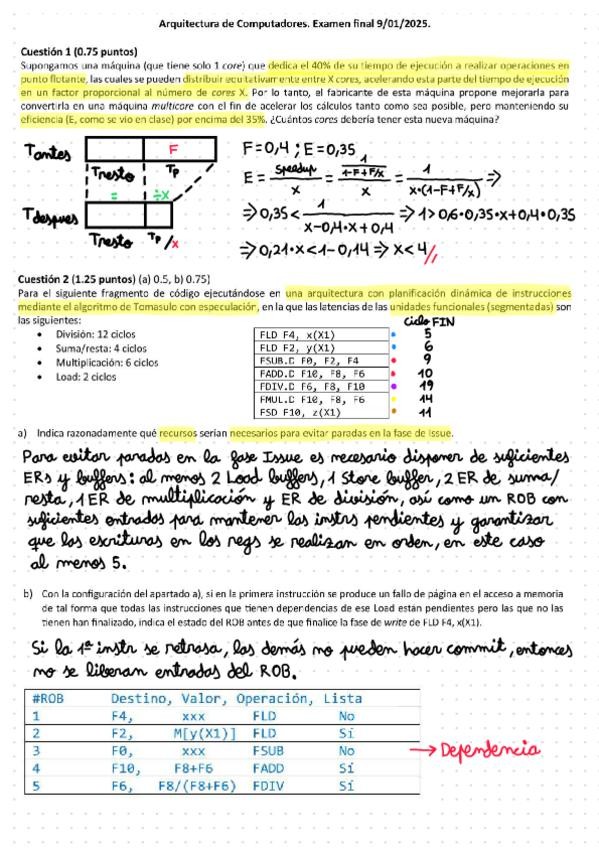 Arquitectura de Computadores. Examen final 9/01/2025.
Cuestión 1 (0.75 puntos)
Supongamos una máquina (que tiene solo 1 core) que dedica el 40% de su tiempo de ejecución a realizar operaciones en
punto flotante, las cuales se pueden distribuir equitativamente entre X cores, acelerando esta parte del tiempo de ejecución
en un factor proporcional al número de cores X. Por lo tanto, el fabricante de esta máquina propone mejorarla para
convertirla en una máquina multicore con el fin de acelerar los cálculos tanto como sea posible, pero manteniendo su
eficiencia (E, como se vio en clase) por encima del 35%. ¿Cuántos cores debería tener esta nueva máquina?
Tantes F
Tresto Tp
= ÷X
Tdespues
Tresto Tp/x
F=0,4 ; E=0,35
E = Speedup/x = (1/(1-F+F/x))/x = 1/(x•(1-F+F/x)) ⇒
⇒ 0,35 < 1/(x-0,4•x+0,4) ⇒ 1 > 0,6•0,35•x+0,4•0,35
⇒ 0,21•x < 1-0,14 ⇒ x < 4//
Cuestión 2 (1.25 puntos) (a) 0.5, b) 0.75]
Para el siguiente fragmento de código ejecutándose en una arquitectura con planificación dinámica de instrucciones
mediante el algoritmo de Tomasulo con especulación, en la que las latencias de las unidades funcionales (segmentadas) son
las siguientes:
• División: 12 ciclos
• Suma/resta: 4 ciclos
• Multiplicación: 6 ciclos
• Load: 2 ciclos
Ciclo FIN
FLD F4, x(X1) 5
FLD F2, y(X1) 6
FSUB.D F0, F2, F4 9
FADD.D F10, F8, F6 10
FDIV.D F6, F8, F10 19
FMUL.D F10, F8, F6 14
FSD F10, z(X1) 11
a) Indica razonadamente qué recursos serían necesarios para evitar paradas en la fase de Issue.
Para evitar paradas en la fase Issue es necesario disponer de suficientes
ERs y buffers: al menos 2 Load buffers, 1 Store buffer, 2 ER de suma/
resta, 1 ER de multiplicación y ER de división, así como un ROB con
suficientes entradas para mantener las instrs pendientes y garantizar
que las escrituras en los regs se realizan en orden, en este caso
al menos 5.
b) Con la configuración del apartado a), si en la primera instrucción se produce un fallo de página en el acceso a memoria
de tal forma que todas las instrucciones que tienen dependencias de ese Load están pendientes pero las que no las
tienen han finalizado, indica el estado del ROB antes de que finalice la fase de write de FLD F4, x(X1).
Si la 1ª instr se retrasa, las demás no pueden hacer commit, entonces
no se liberan entradas del ROB.
#ROB Destino, Valor, Operación, Lista
1 F4, xxx FLD No
2 F2, M[y(X1)] FLD Sí
3 F0, xxx FSUB No → Dependencia
4 F10, F8+F6 FADD Sí
5 F6, F8/(F8+F6) FDIV Sí